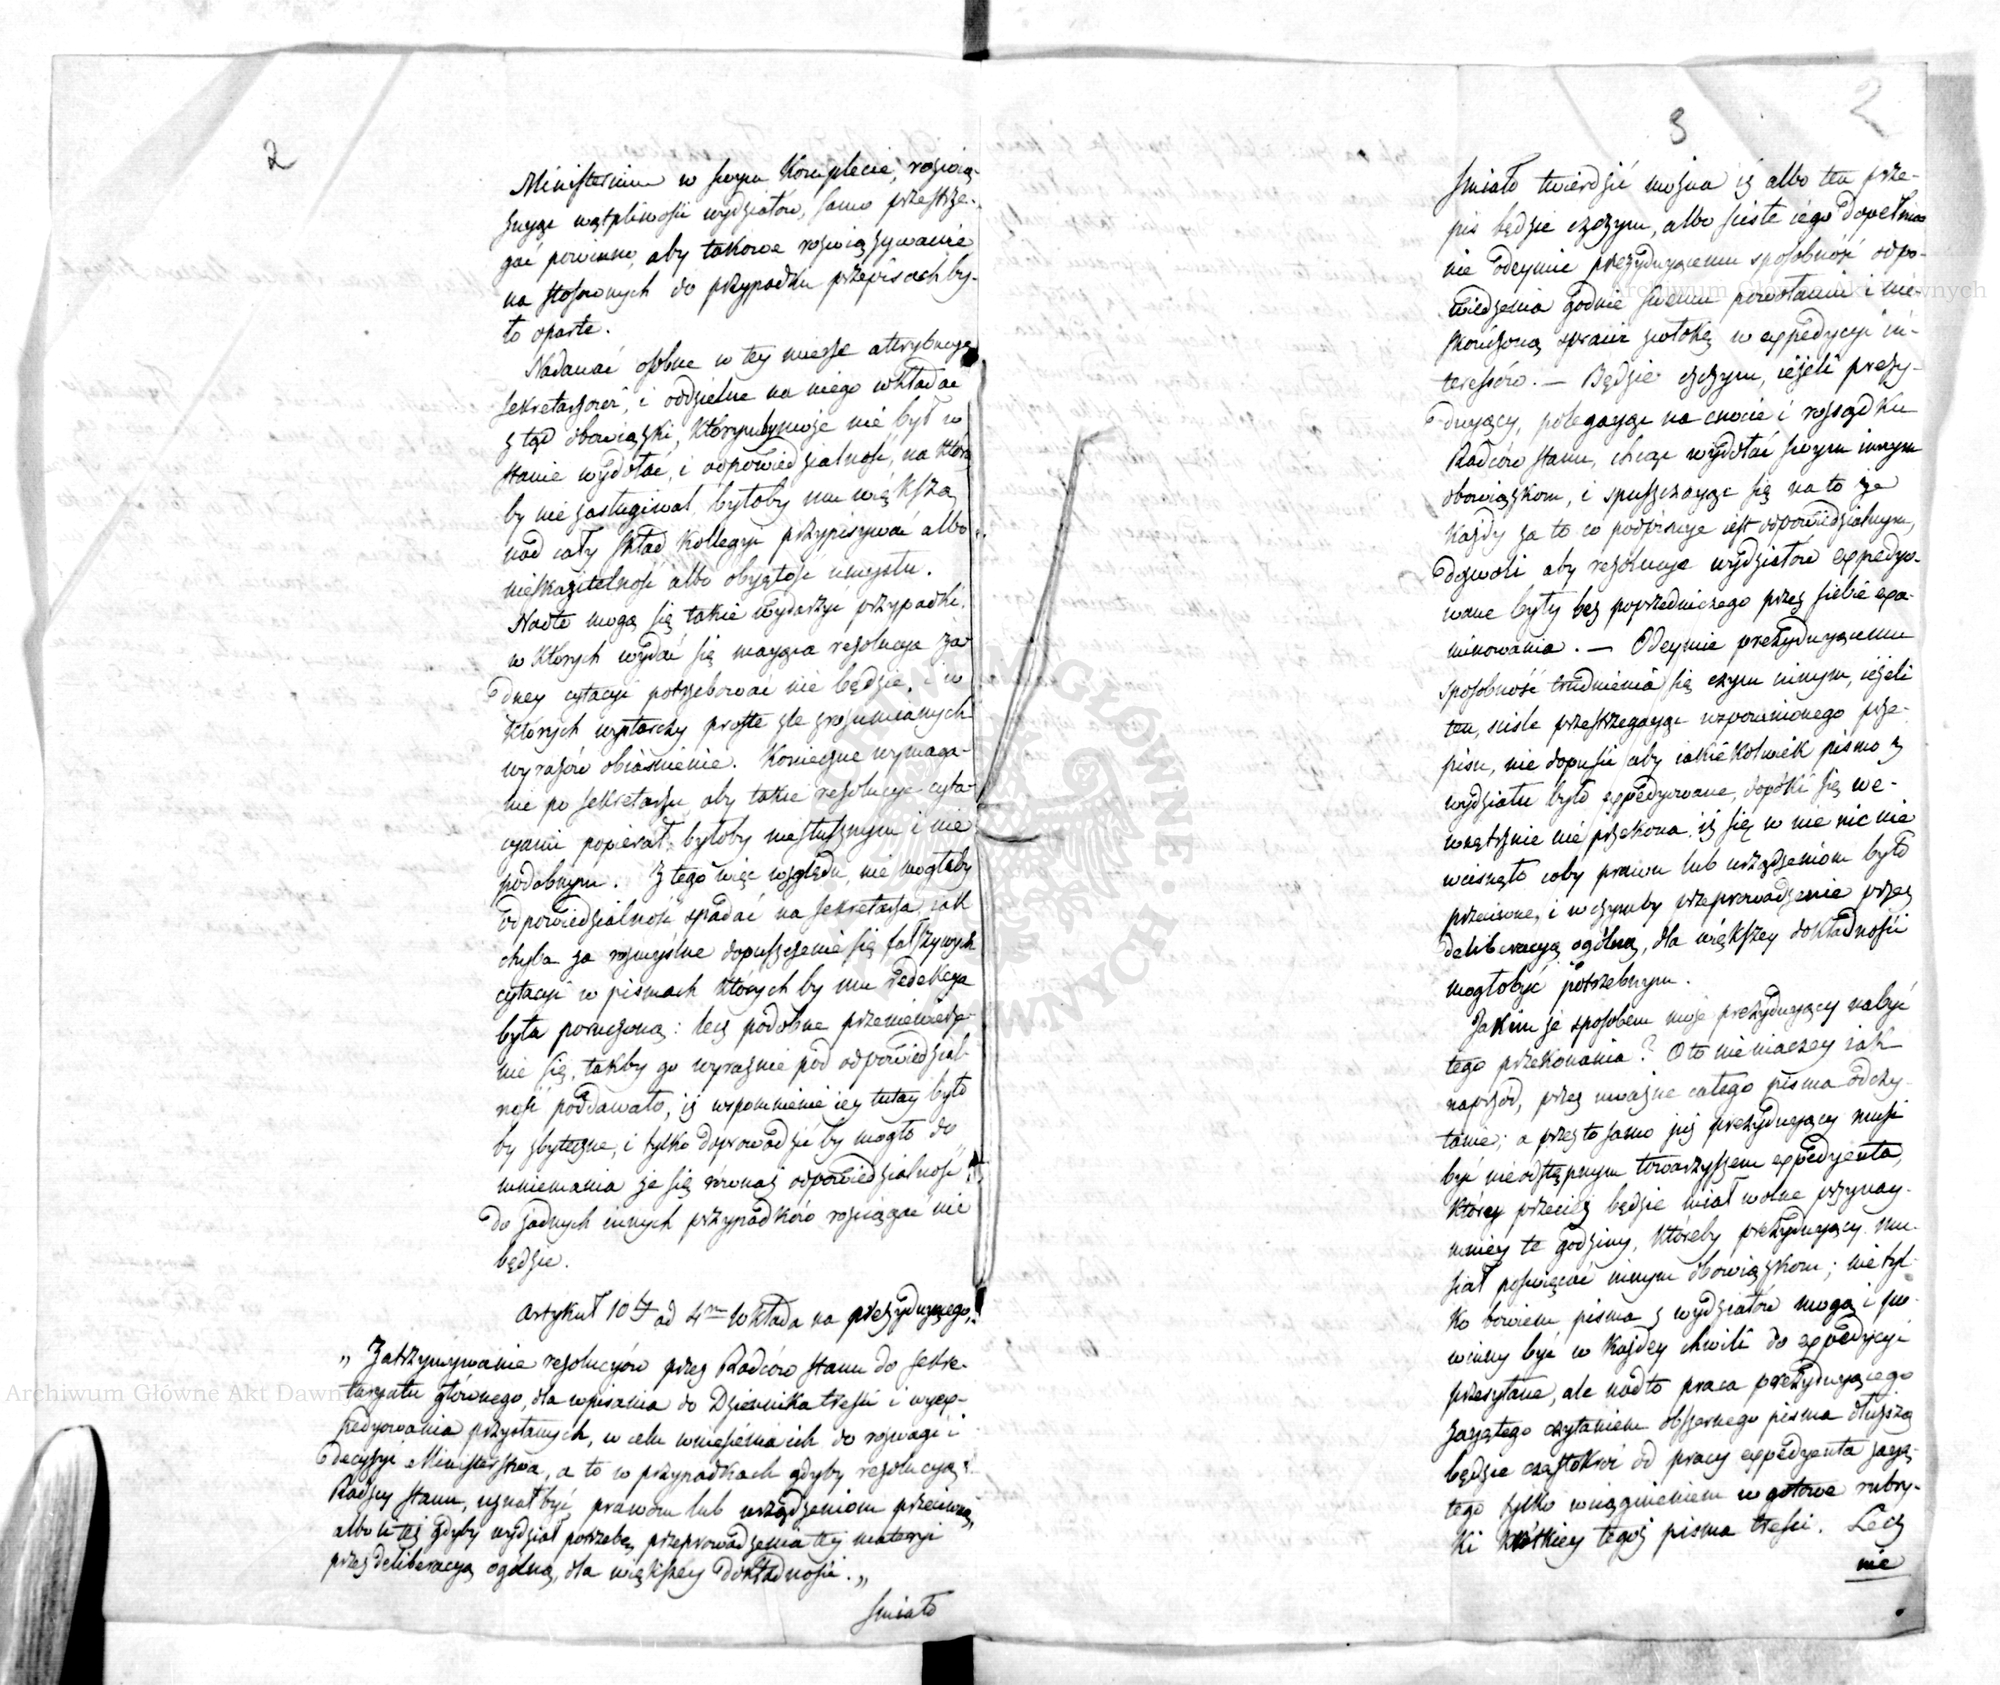 2
Ministerium w swym Komplecie, rozwią-
zuyąc wątpliwości wydziałów, samo przestrze-
gać powinno, aby takowe rozwiązywanie
na stosownych do przypadku przepisach by-
ło oparte.
Nadawać osobne w tey mierze attrybucye
Sekretarzowi, i oddzielne na niego wkładać
z tąd obowiązki, którym by może nie był w
stanie wydołać, i odpowiedzialność, na którą
by nie zasługiwał, byłoby mu większą
nad cały skład Kollegii przypisywać albo
nieskazitelność albo obiętość umysłu.
Nadto mogą się takie wydarzyć przypadki,
w których wydać się maiąca rezolucya ża-
dney cytacyi potrzebować nie będzie, i w
których wystarczy proste źle zrozumianych
wyrazów obiaśnienie. Konieczne wymaga-
nie po Sekretarzu, aby takie rezolucye cyta-
cyami popierał, byłoby niesłusznym i nie
podobnym. Z tego więc względu, nie mogłaby
odpowiedzialność spadać na Sekretarza, iak
chyba za rozmyślne dopuszczenie się fałszywych
cytacyi w pismach których by mu redakcya
była poruczoną: lecz podobne przeniewierze-
nie się, takby go wyraźnie pod odpowiedzial-
ność poddawało, iż wspomnienie iey tutay było
by zbyteczne, i tylko doprowadzić by mogło do
mniemania że się równaż odpowiedzialność
do żadnych innych przypadków rościągać nie
będzie.
Artykuł 10ty ad 4m wkłada na prezyduiącego,
„Zatrzymywanie rezolucyów przez Radców Stanu do Sekre-
taryatu głównego, dla wpisania do Dziennika treści i wyex-
pedyowania przysłanych, w celu wniesienia ich do rozwagi i
decyzyi Ministerstwa, a to w przypadkach gdyby rezolucyą
Radcy Stanu, uznał być prawom lub urządzeniom przeciwną,
albo też gdyby widział potrzebę, przeprowadzenia tey materyi
przez deliberacyą ogólną, dla większey dokładności.„
Śmiało
3
2
Śmiało twierdzić można iż albo ten prze-
pis będzie czczym, albo ścisłe iego dopełnie
nie odeymie prezyduiącemu sposobność odpo-
wiedzenia godnie swemu powołaniu i nie-
skończoną sprawi zwłokę w expedycyi in-
teressów. — Będzie czczym, ieżeli prezy-
duiący, polegaiąc na cnocie i rozsądku
Radców Stanu, chcąc wydołać swym innym
obowiązkom, i spuszczaiąc się na to że
każdy za to co podpisuje iest odpowiedzialnym,
dozwoli aby rezolucye wydziałów expedyo-
wane były bez poprzedniczego przez siebie exa-
minowania. — Odeymie prezyduiącemu
sposobność trudnienia się czym innym, ieżeli
ten, ściśle przestrzegaiąc wspomnionego prze-
pisu, nie dopuści aby iakiekolwiek pismo z
wydziału było expedyowane, dopóki się we-
wnętrznie nie przekona, iż się w nie nic nie
wcisnęło coby prawu lub urządzeniom było
przeciwne, i w czymby przeprowadzenie przez
deliberacyą ogólną, dla większey dokładności
mogło być potrzebnym.
Jakim że sposobem może prezyduiący nabyć
tego przekonania? Oto nie inaczey iak
naprzód, przez uważne całego pisma odczy-
tanie; a przez to samo już prezyduiący musi
być nieodstępnym towarzyszem expedyenta,
który przecież będzie miał wolne przynay-
mniey te godziny, któreby prezyduiący mu-
siał poświęcać innym obowiązkom; nie tyl-
ko bowiem pisma z wydziałów mogą i po-
winny być w każdey chwili do expedycyi
przesyłane, ale nadto praca prezyduiącego
zaiętego czytaniem obszernego pisma dłuższą
będzie częstokroć od pracy expedyenta zaię-
tego tylko wciągnieniem w gotowe rubry-
ki krótkiey tegoż pisma treści. Lecz
nie
Archiwum Główne Akt Dawnych